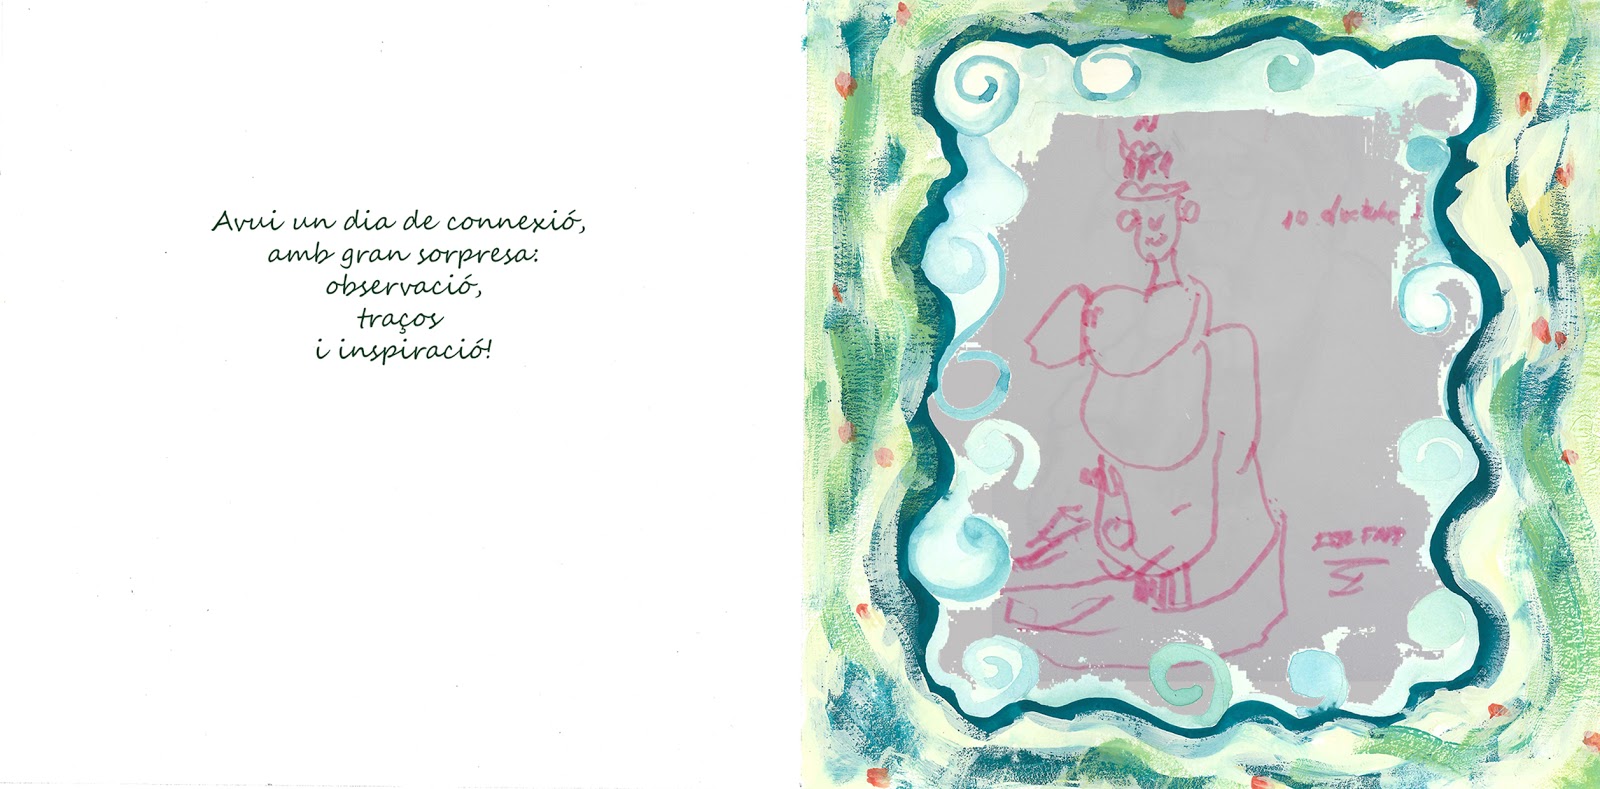 Avui un dia de connexió,
amb gran sorpresa:
observació,
traços
i inspiració!
10 d'octubre